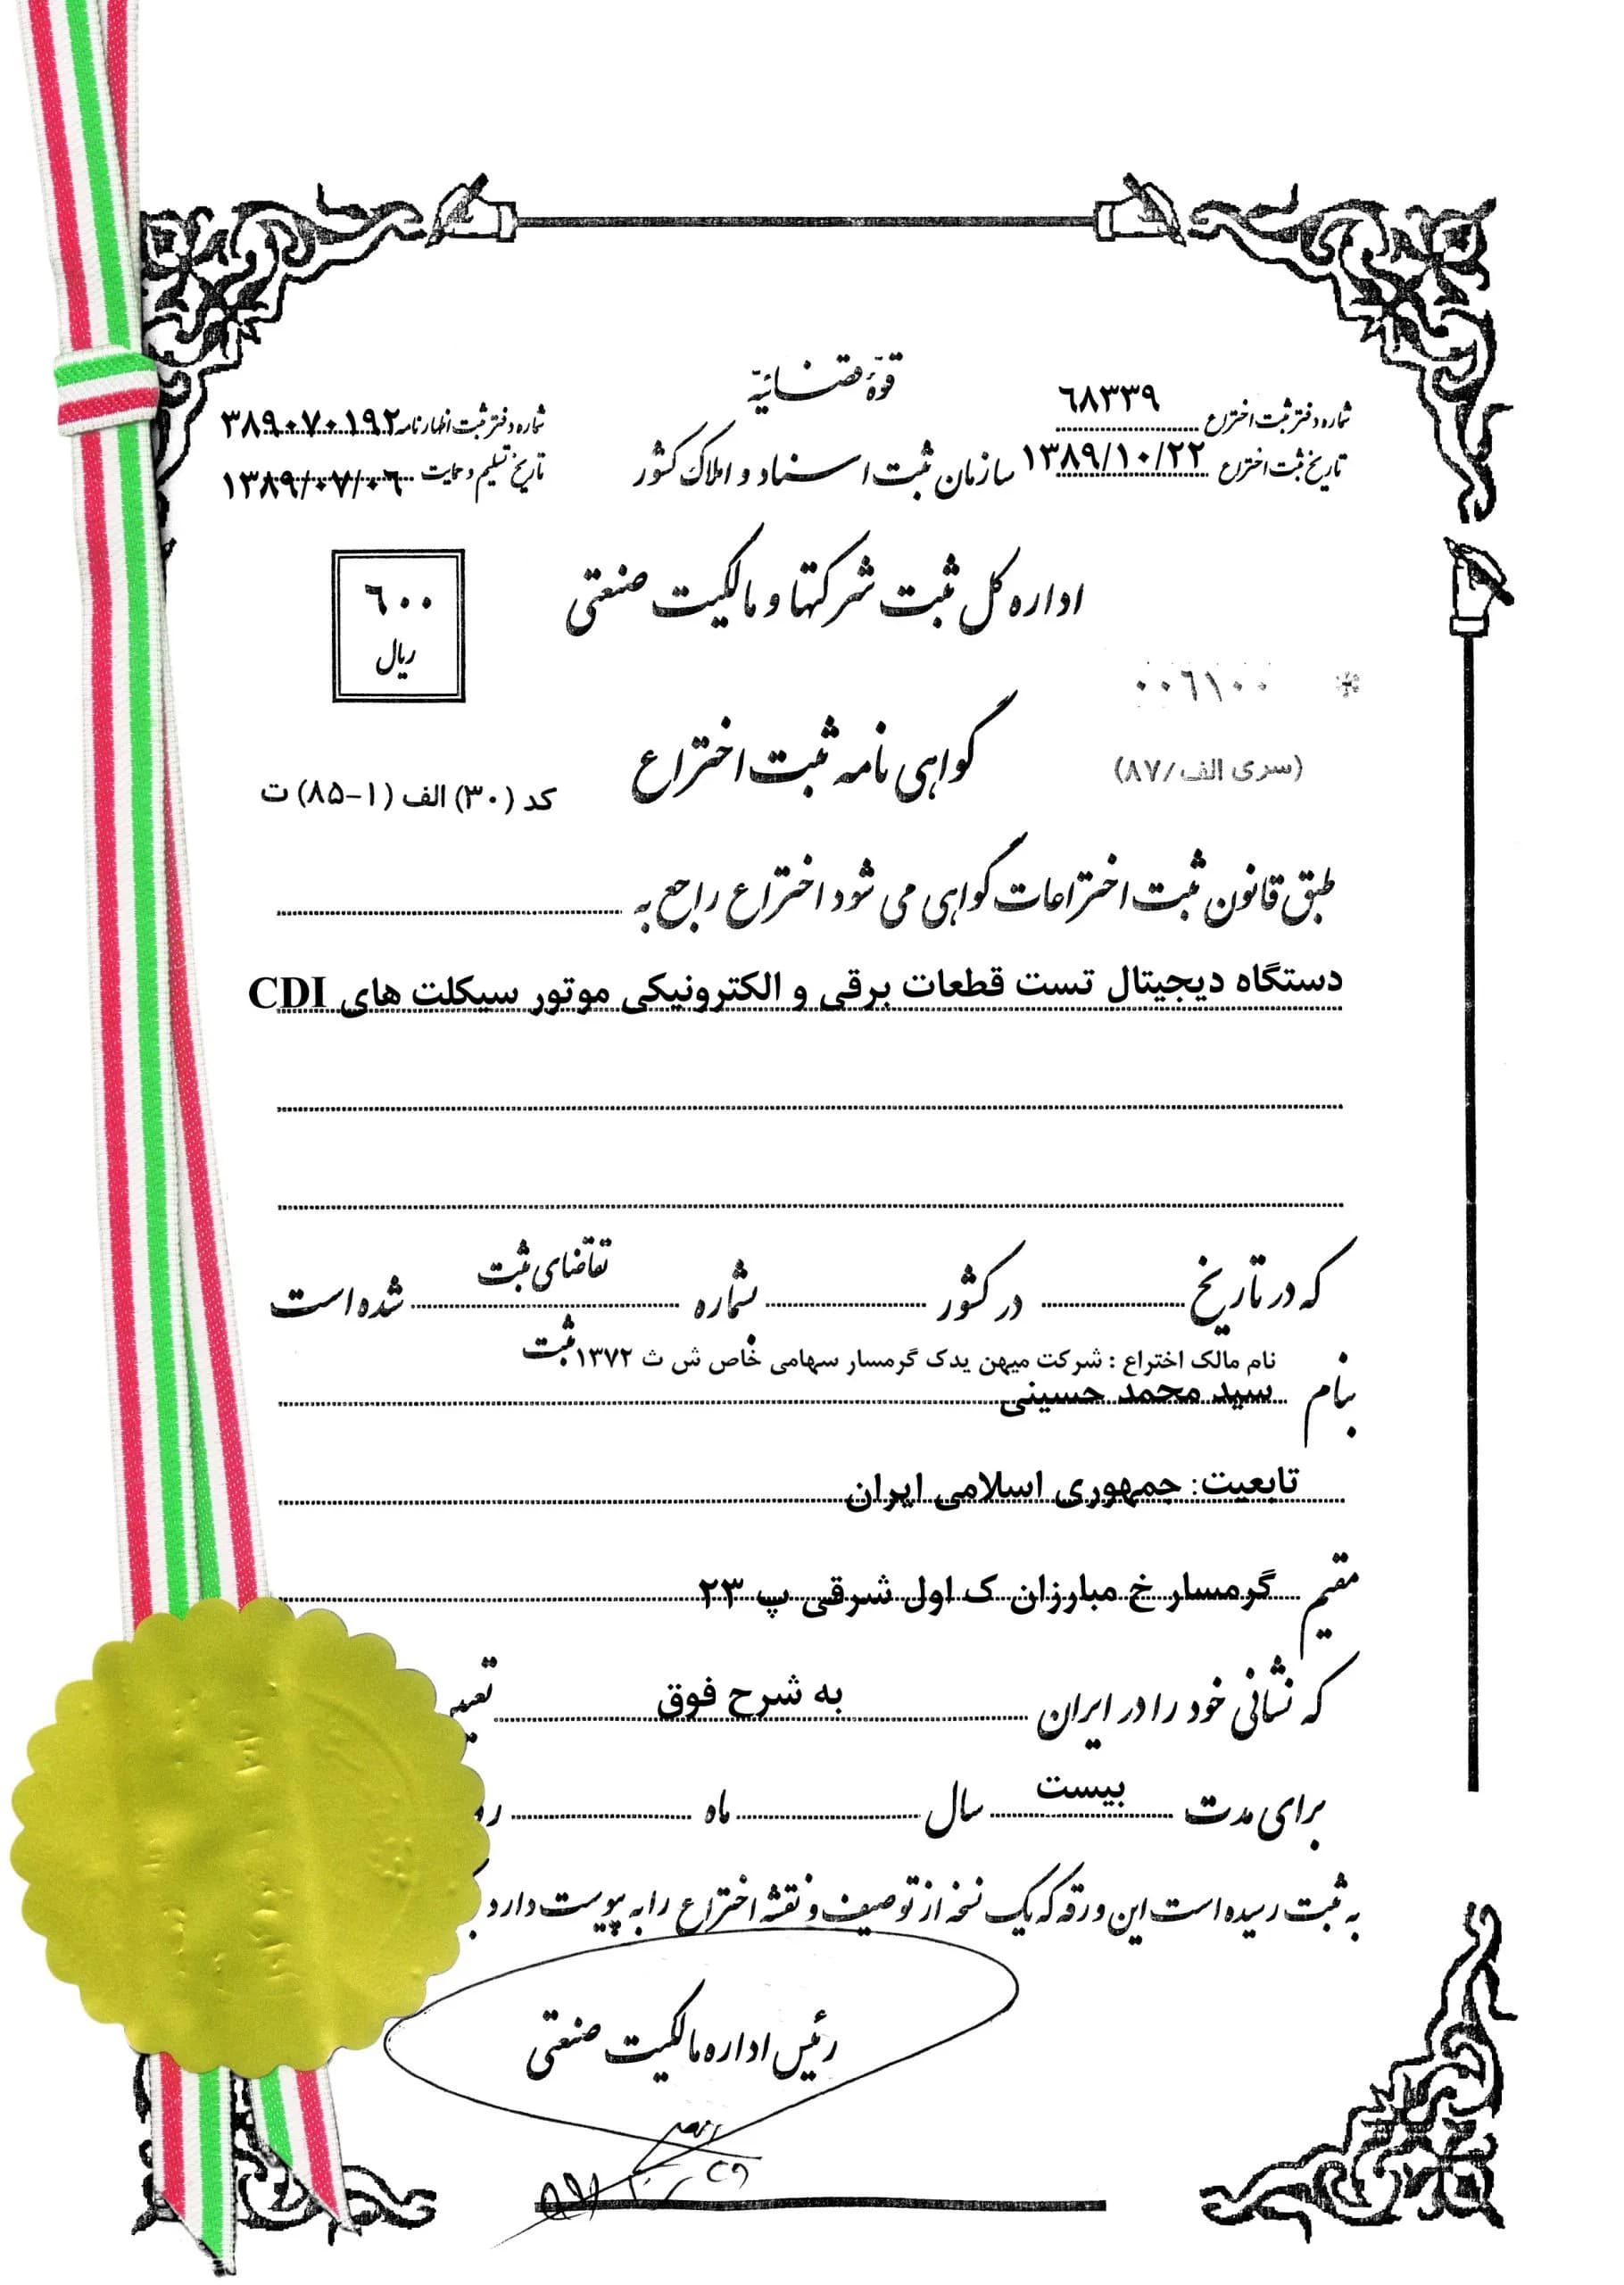 قوّهٔ قضائیّه
شماره دفتر ثبت اختراع ٦٨٣٣٩
شماره دفتر ثبت اظهارنامه ٣٨٩٠٧٠١٩٢
تاریخ ثبت اختراع ١٣٨٩/١٠/٢٢
سازمان ثبت اسناد و املاک کشور
تاریخ تسلیم و حمایت ١٣٨٩/٠٧/٠٦
اداره کل ثبت شرکتها و مالکیت صنعتی
٦٠٠
ریال
* ٠٠٦١٠٠
گواهی نامه ثبت اختراع
(سری الف/٨٧)
کد (٣٠) الف (١-٨٥) ت
طبق قانون ثبت اختراعات گواهی می شود اختراع راجع به
دستگاه دیجیتال تست قطعات برقی و الکترونیکی موتور سیکلت های CDI
که در تاریخ در کشور بشماره تقاضای ثبت شده است
ثبت
نام مالک اختراع : شرکت میهن یدک گرمسار سهامی خاص ش ث ١٣٧٢
بنام سید محمد حسینی
تابعیت: جمهوری اسلامی ایران
مقیم گرمسار خ مبارزان ک اول شرقی پ ٢٣
که نشانی خود را در ایران به شرح فوق
برای مدت بیست سال ماه
به ثبت رسیده است این ورقه که یک نسخه از توصیف و نقشه اختراع را به پیوست دارد
رئیس اداره مالکیت صنعتی